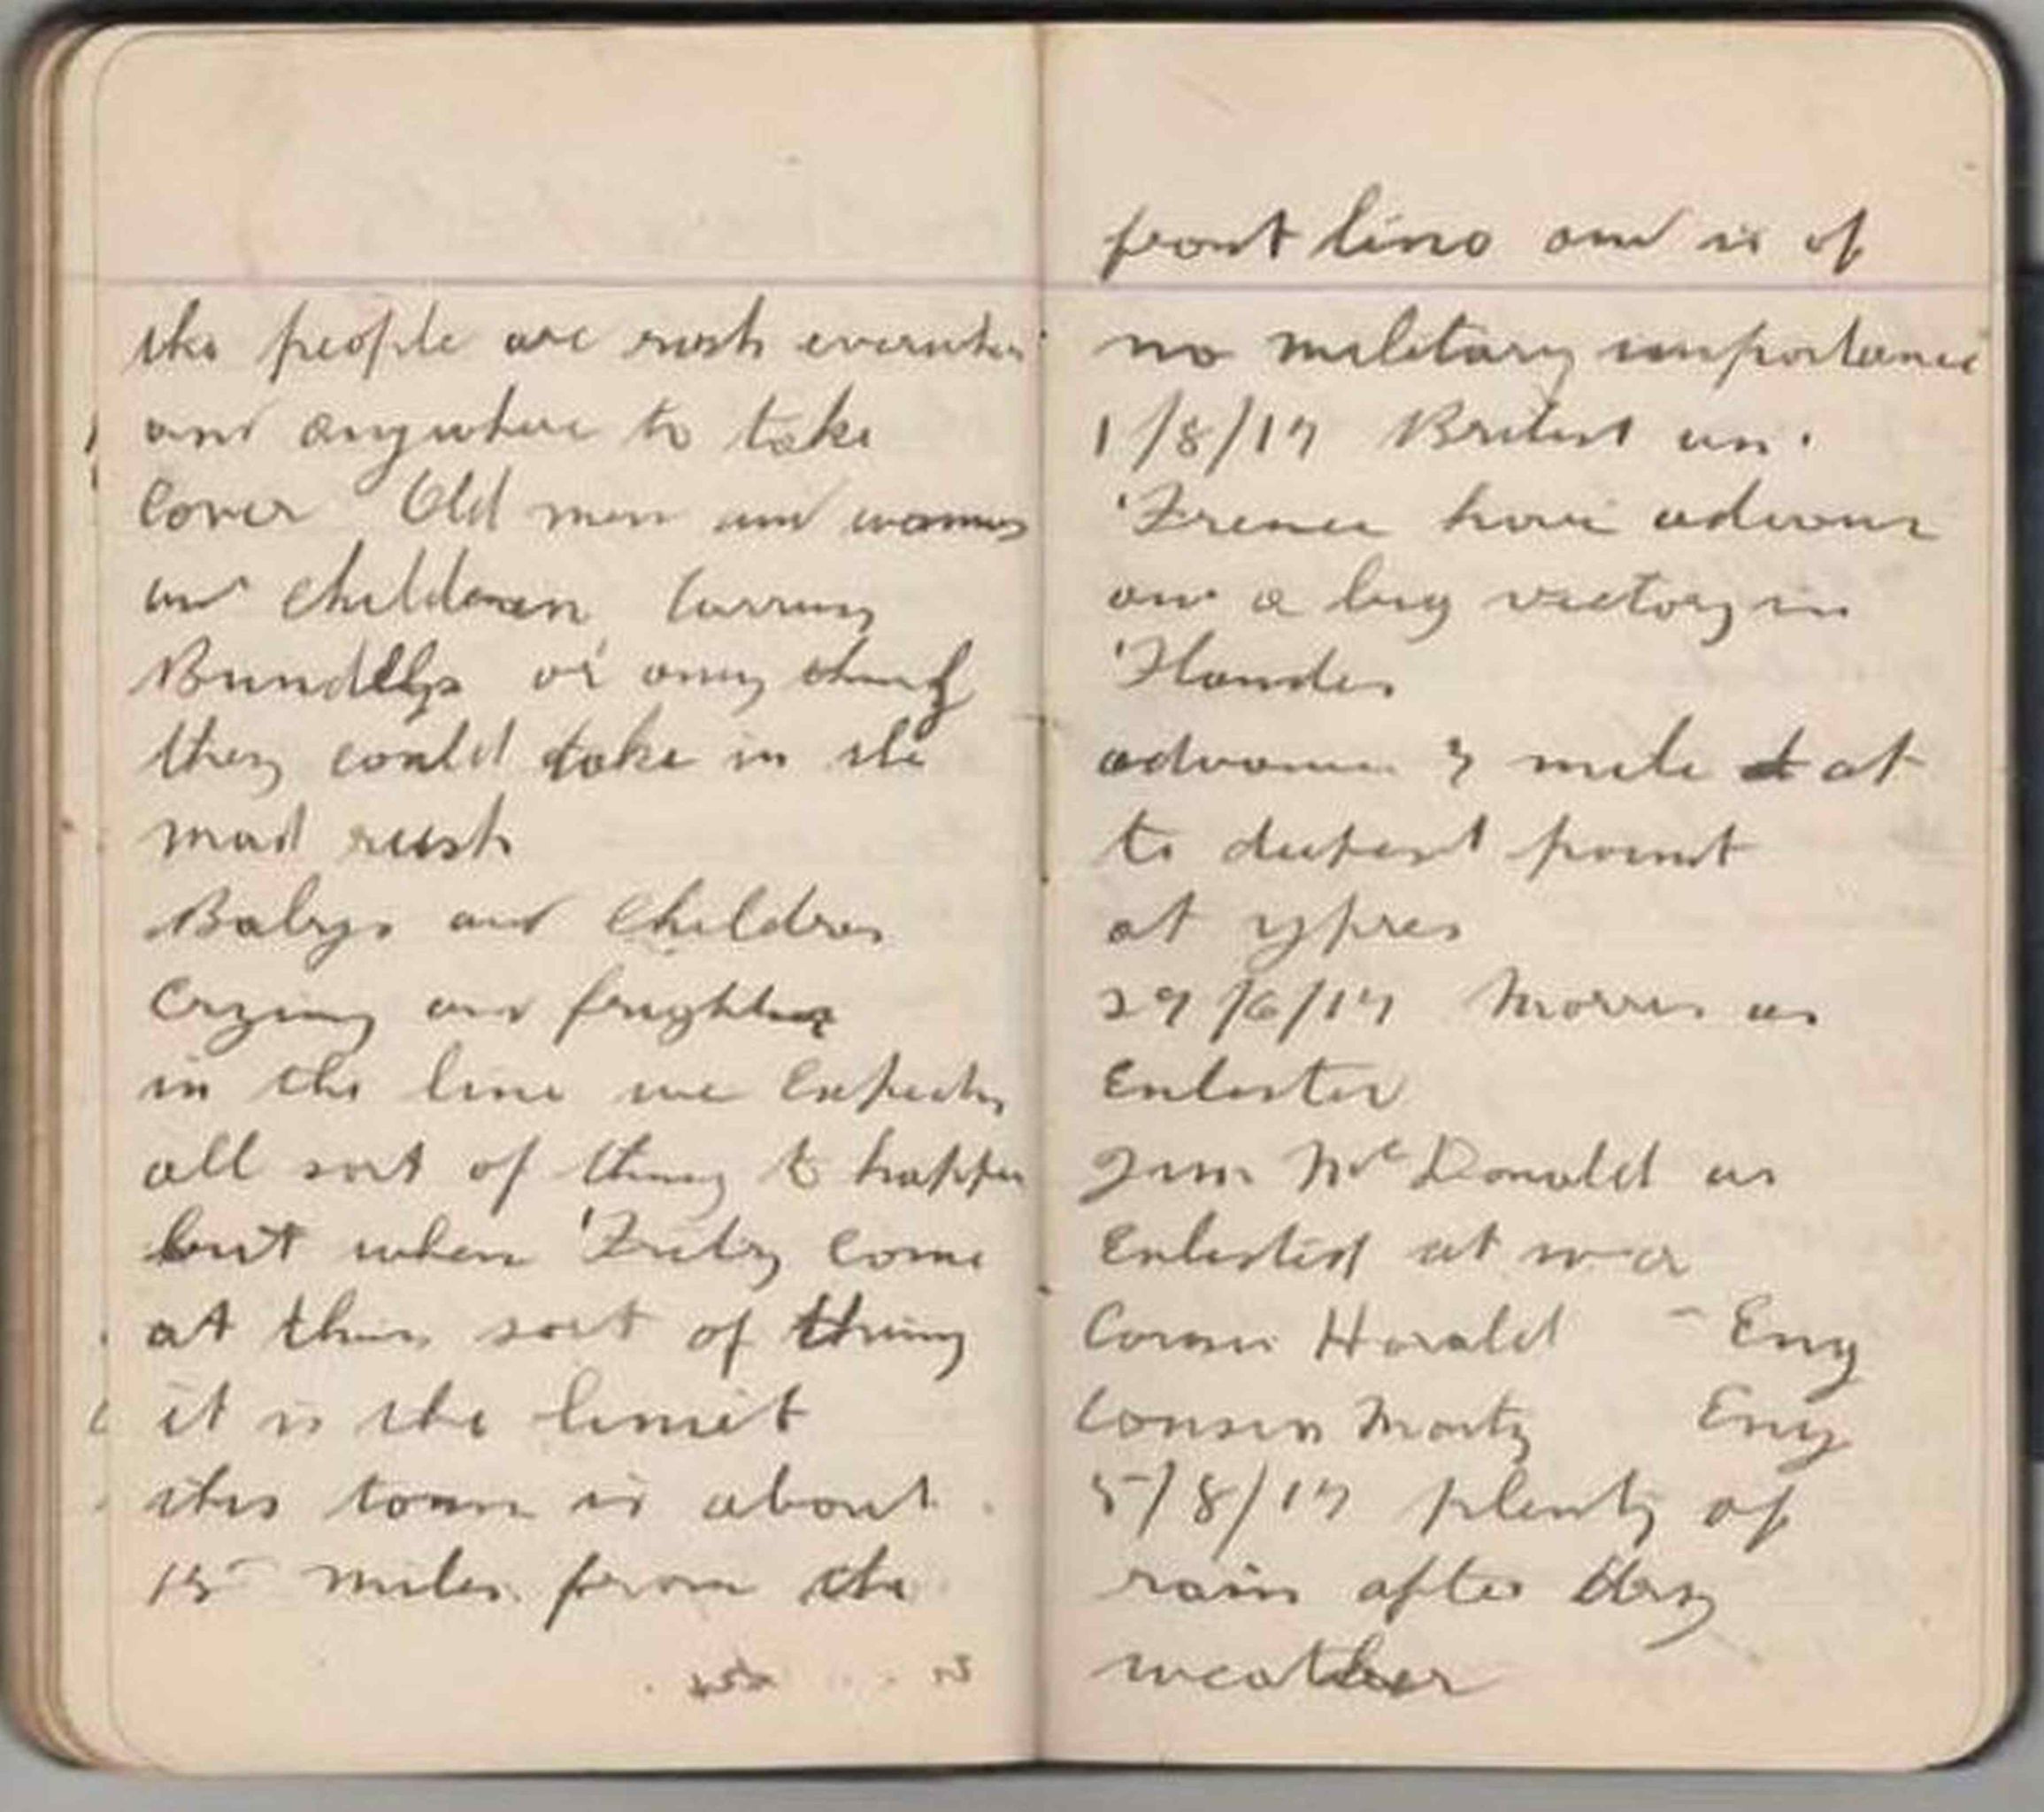 the people are rush
and anywhere to take
Cover Old men and
and children Carring
or any thing
they could take in the
mad rush
Babys and Children
Crying and
in the line we Expected
all sort of thing to happen
but when Fritz come
at this sort of thing
it is the limit
this town is about
15 miles from the
front line and is of
no military importance
1/8/17 British an
have
and a big victory in
Flanders
advance mile at
to deepest point
at ypres
29/6/17 Morris as
Enlisted
Jim McDonald as
Enlisted at
Harald - Eng
Cousin Eng
5/8/17 plenty of
rain after dry
weather